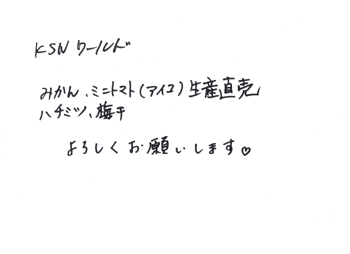 KSNワールド
みかん、ミニトマト(アイコ)生産直売
ハチミツ、梅干
よろしくお願いします♡